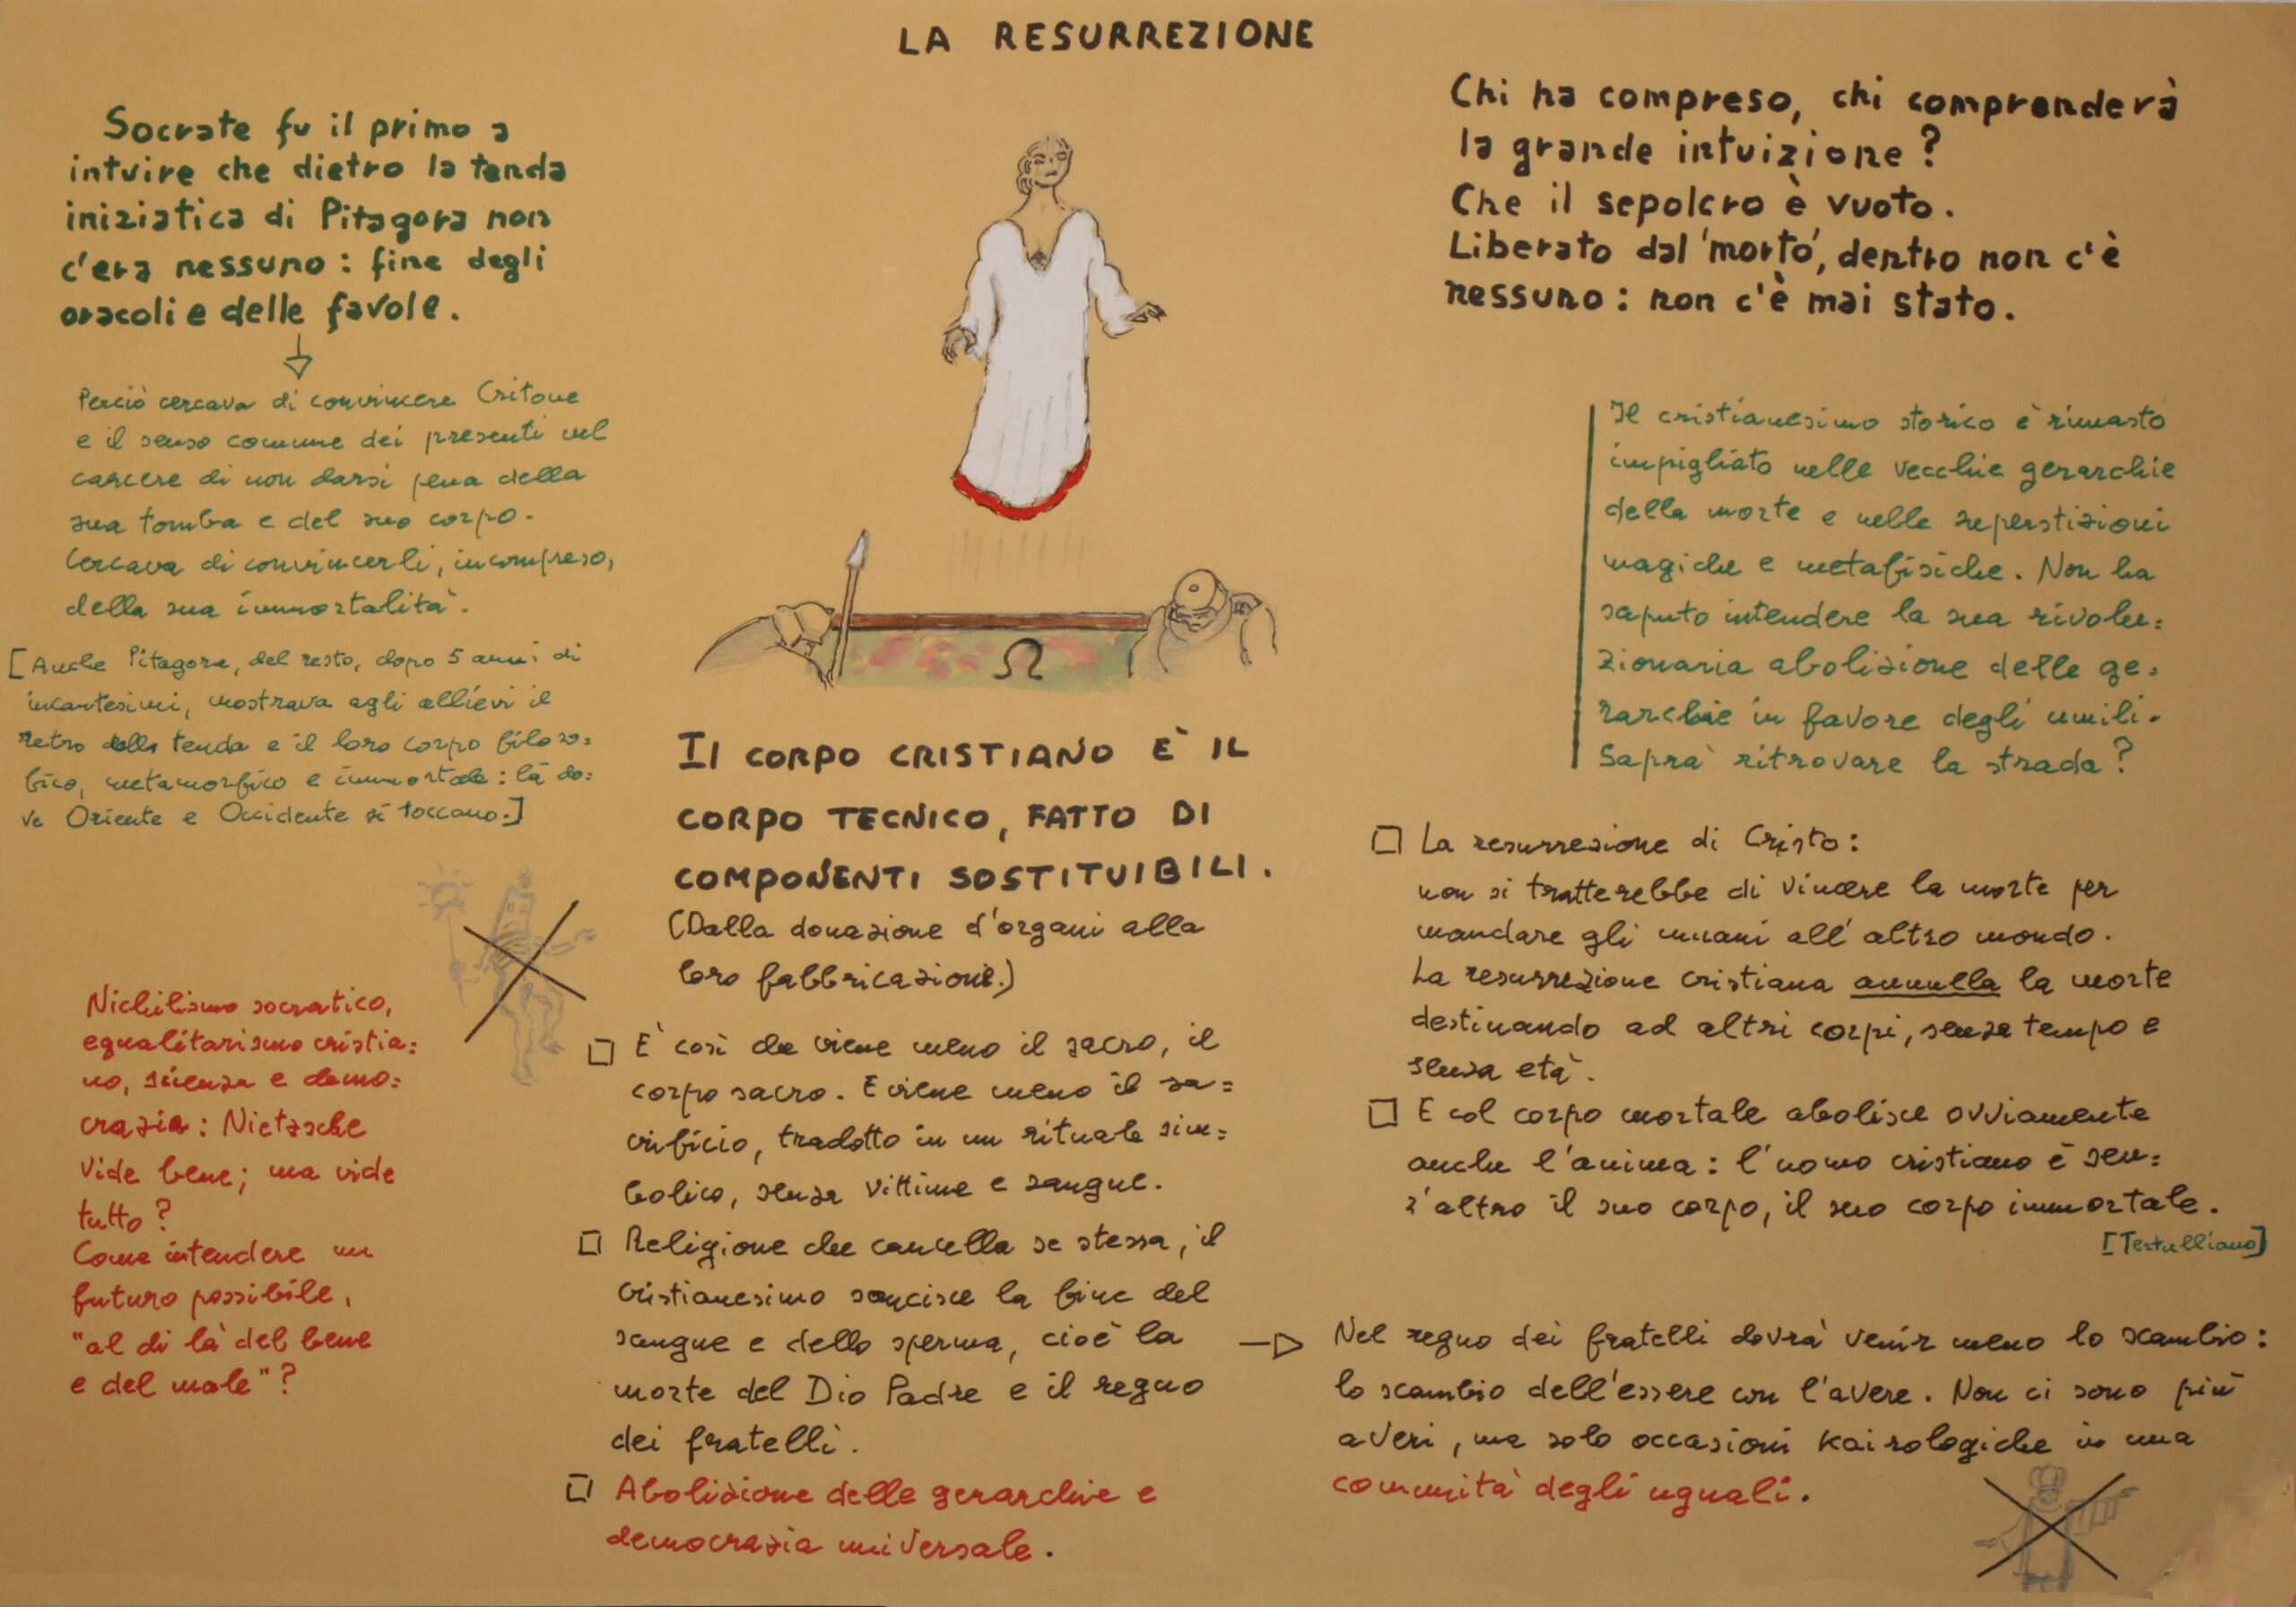 LA RESURREZIONE
Socrate fu il primo a
intuire che dietro la tenda
iniziatica di Pitagora non
c'era nessuno: fine degli
oracoli e delle favole.
Perciò cercava di convincere Critone
e il senso comune dei presenti nel
carcere di non darsi pena della
sua tomba e del suo corpo.
Cercava di convincerli, incompreso,
della sua immortalità.
[Anche Pitagora, del resto, dopo 5 anni di
incantesimi, mostrava agli allievi il
retro della tenda e il loro corpo filoso=
fico, metamorfico e immortale: là do=
ve Oriente e Occidente si toccano.]
Nichilismo socratico,
egualitarismo cristia=
no, scienza e demo=
crazia: Nietzsche
vide bene; ma vide
tutto?
Come intendere un
futuro possibile,
"al di là del bene
e del male"?
Ω
Il CORPO CRISTIANO E' IL
CORPO TECNICO, FATTO DI
COMPONENTI SOSTITUIBILI.
(Dalla donazione d'organi alla
loro fabbricazione.)
E' così che viene meno il sacro, il
corpo sacro. E viene meno il sa=
crificio, tradotto in un rituale sim=
bolico, senza vittime e sangue.
Religione che cancella se stessa, il
cristianesimo sancisce la fine del
sangue e dello sperma, cioè la
morte del Dio Padre e il regno
dei fratelli.
Abolizione delle gerarchie e
democrazia universale.
Chi ha compreso, chi comprenderà
la grande intuizione?
Che il sepolcro è vuoto.
Liberato dal 'morto', dentro non c'è
nessuno: non c'è mai stato.
Il cristianesimo storico è rimasto
impigliato nelle vecchie gerarchie
della morte e nelle superstizioni
magiche e metafisiche. Non ha
saputo intendere la sua rivolu=
zionaria abolizione delle ge=
rarchie in favore degli umili.
Saprà ritrovare la strada?
La resurrezione di Cristo:
non si tratterebbe di vincere la morte per
mandare gli umani all'altro mondo.
La resurrezione cristiana annulla la morte
destinando ad altri corpi, senza tempo e
senza età.
E col corpo mortale abolisce ovviamente
anche l'anima: l'uomo cristiano è sen=
z'altro il suo corpo, il suo corpo immortale.
[Tertulliano]
Nel regno dei fratelli dovrà venir meno lo scambio:
lo scambio dell'essere con l'avere. Non ci sono più
averi, ma solo occasioni kairologiche in una
comunità degli uguali.